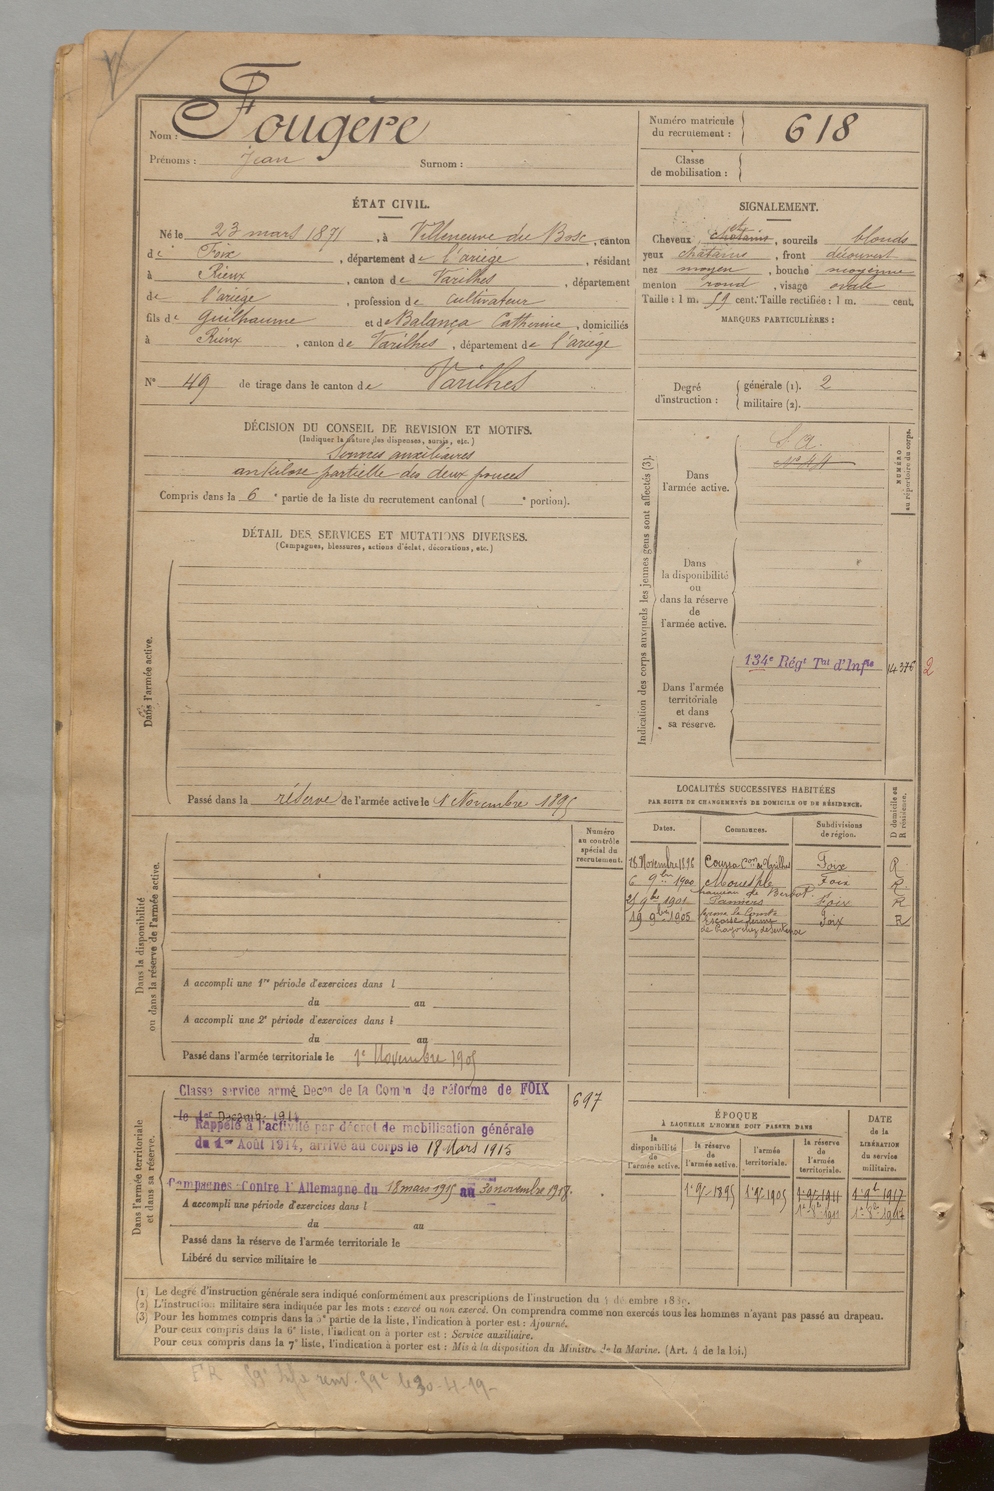 Nom : Fougère
Prénoms : Jean Surnom :
Numéro matricule du recrutement : 618
Classe de mobilisation :
ÉTAT CIVIL.
Né le 23 mars 1871, à Villeneuve du Bosc, canton
de Foix, département de l'ariège, résidant
à Rieux, canton de Varilhes, département
de l'ariége, profession de cultivateur
fils de Guilhaume et de Balança Catherine, domiciliés
à Rieux, canton de Varilhes, département de l'ariége
N° 49 de tirage dans le canton de Varilhes
SIGNALEMENT.
Cheveux chatains, sourcils blonds
yeux châtains, front découvert
nez moyen, bouche moyenne
menton rond, visage ovale
Taille : 1 m. 59 cent. Taille rectifiée : 1 m. cent.
MARQUES PARTICULIÈRES :
Degré d'instruction : générale (1). 2
militaire (2).
DÉCISION DU CONSEIL DE REVISION ET MOTIFS.
(Indiquer la nature des dispenses, sursis, etc.)
auxiliaires
ankilose partielle des deux pouces
Compris dans la 6e partie de la liste du recrutement cantonal ( e portion).
DÉTAIL DES SERVICES ET MUTATIONS DIVERSES.
(Campagnes, blessures, actions d'éclat, décorations, etc.)
Dans l'armée active.
Passé dans la réserve de l'armée active le 1 Novembre 1895
Indication des corps auxquels les jeunes gens sont affectés (3).
NUMÉRO au répertoire du corps.
Dans l'armée active.
S. A.
Dans la disponibilité ou dans la réserve de l'armée active.
Dans l'armée territoriale et dans sa réserve.
134e Régt Tal d'Infie
14376
2
LOCALITÉS SUCCESSIVES HABITÉES
PAR SUITE DE CHANGEMENTS DE DOMICILE OU DE RÉSIDENCE.
D domicile ou R résidence.
Dates. Communes. Subdivisions de région.
Novembre 1896 Foix R
6 9bre 1900 Foix R
9bre 1901 Pamiers Foix R
19 9bre 1905 Foix R
Dans la disponibilité ou dans la réserve de l'armée active.
Numéro au contrôle spécial du recrutement.
A accompli une 1re période d'exercices dans l
du au
A accompli une 2e période d'exercices dans l
du au
Passé dans l'armée territoriale le 1e Novembre 1905
Dans l'armée territoriale et dans sa réserve.
Classé service armé Décon de la Comon de réforme de FOIX
le 1er Décembre 1914
697
Rappelé à l'activité par décret de mobilisation générale
du 1er Août 1914, arrivé au corps le 18 Mars 1915
Campagnes : Contre l'Allemagne du 18 mars 1915 au 30 novembre 1918.
A accompli une période d'exercices dans l
du au
Passé dans la réserve de l'armée territoriale le
Libéré du service militaire le
ÉPOQUE
À LAQUELLE L'HOMME DOIT PASSER DANS
la disponibilité de l'armée active.
la réserve de l'armée active.
l'armée territoriale.
la réserve de l'armée territoriale.
DATE de la LIBÉRATION du service militaire.
1e 9bre 1895 1e 9bre 1905 1e 9bre 1911 1e 9bre 1917
(1) Le degré d'instruction générale sera indiqué conformément aux prescriptions de l'instruction du
(2) L'instruction militaire sera indiquée par les mots : exercé ou non exercé. On comprendra comme non exercés tous les hommes n'ayant pas passé au drapeau.
(3) Pour les hommes compris dans la 5e partie de la liste, l'indication à porter est : Ajourné.
Pour ceux compris dans la 6e liste, l'indication à porter est : Service auxiliaire.
Pour ceux compris dans la 7e liste, l'indication à porter est : Mis à la disposition du Ministre de la Marine. (Art. 4 de la loi.)